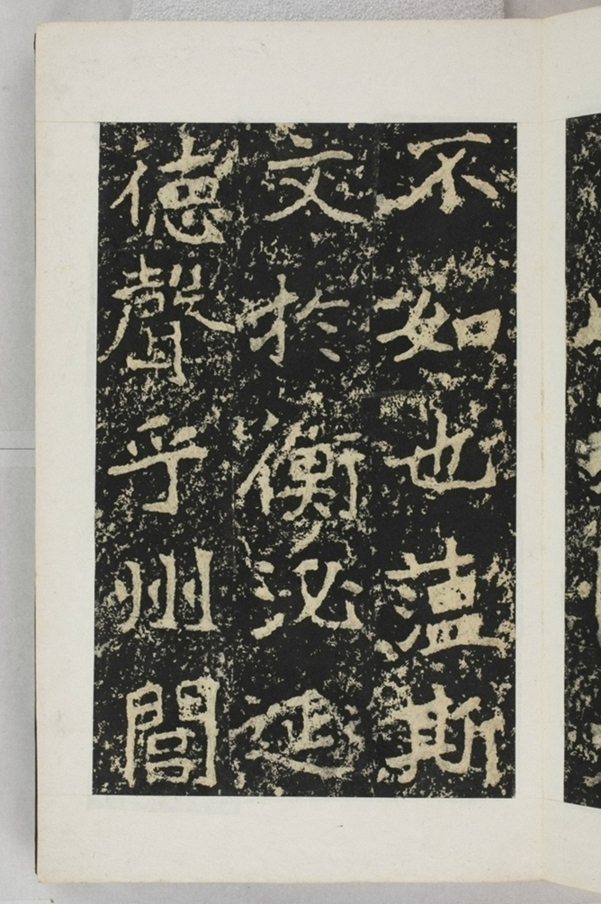 不如也蕰斯
文於衡泌延
德聲乎州閭